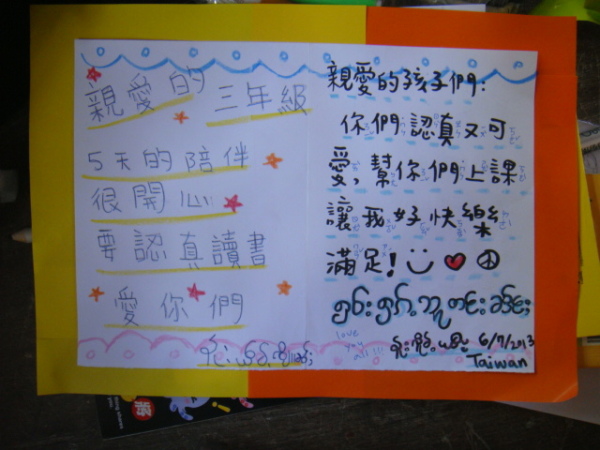 親愛的
三年級
5天的陪伴
很開心
要認真讀書
愛你們
親愛的孩子們:
你們認真又可
愛,幫你們上課
讓我好快樂
滿足!
love
you
all!!!
6/7/2013
Taiwan
將